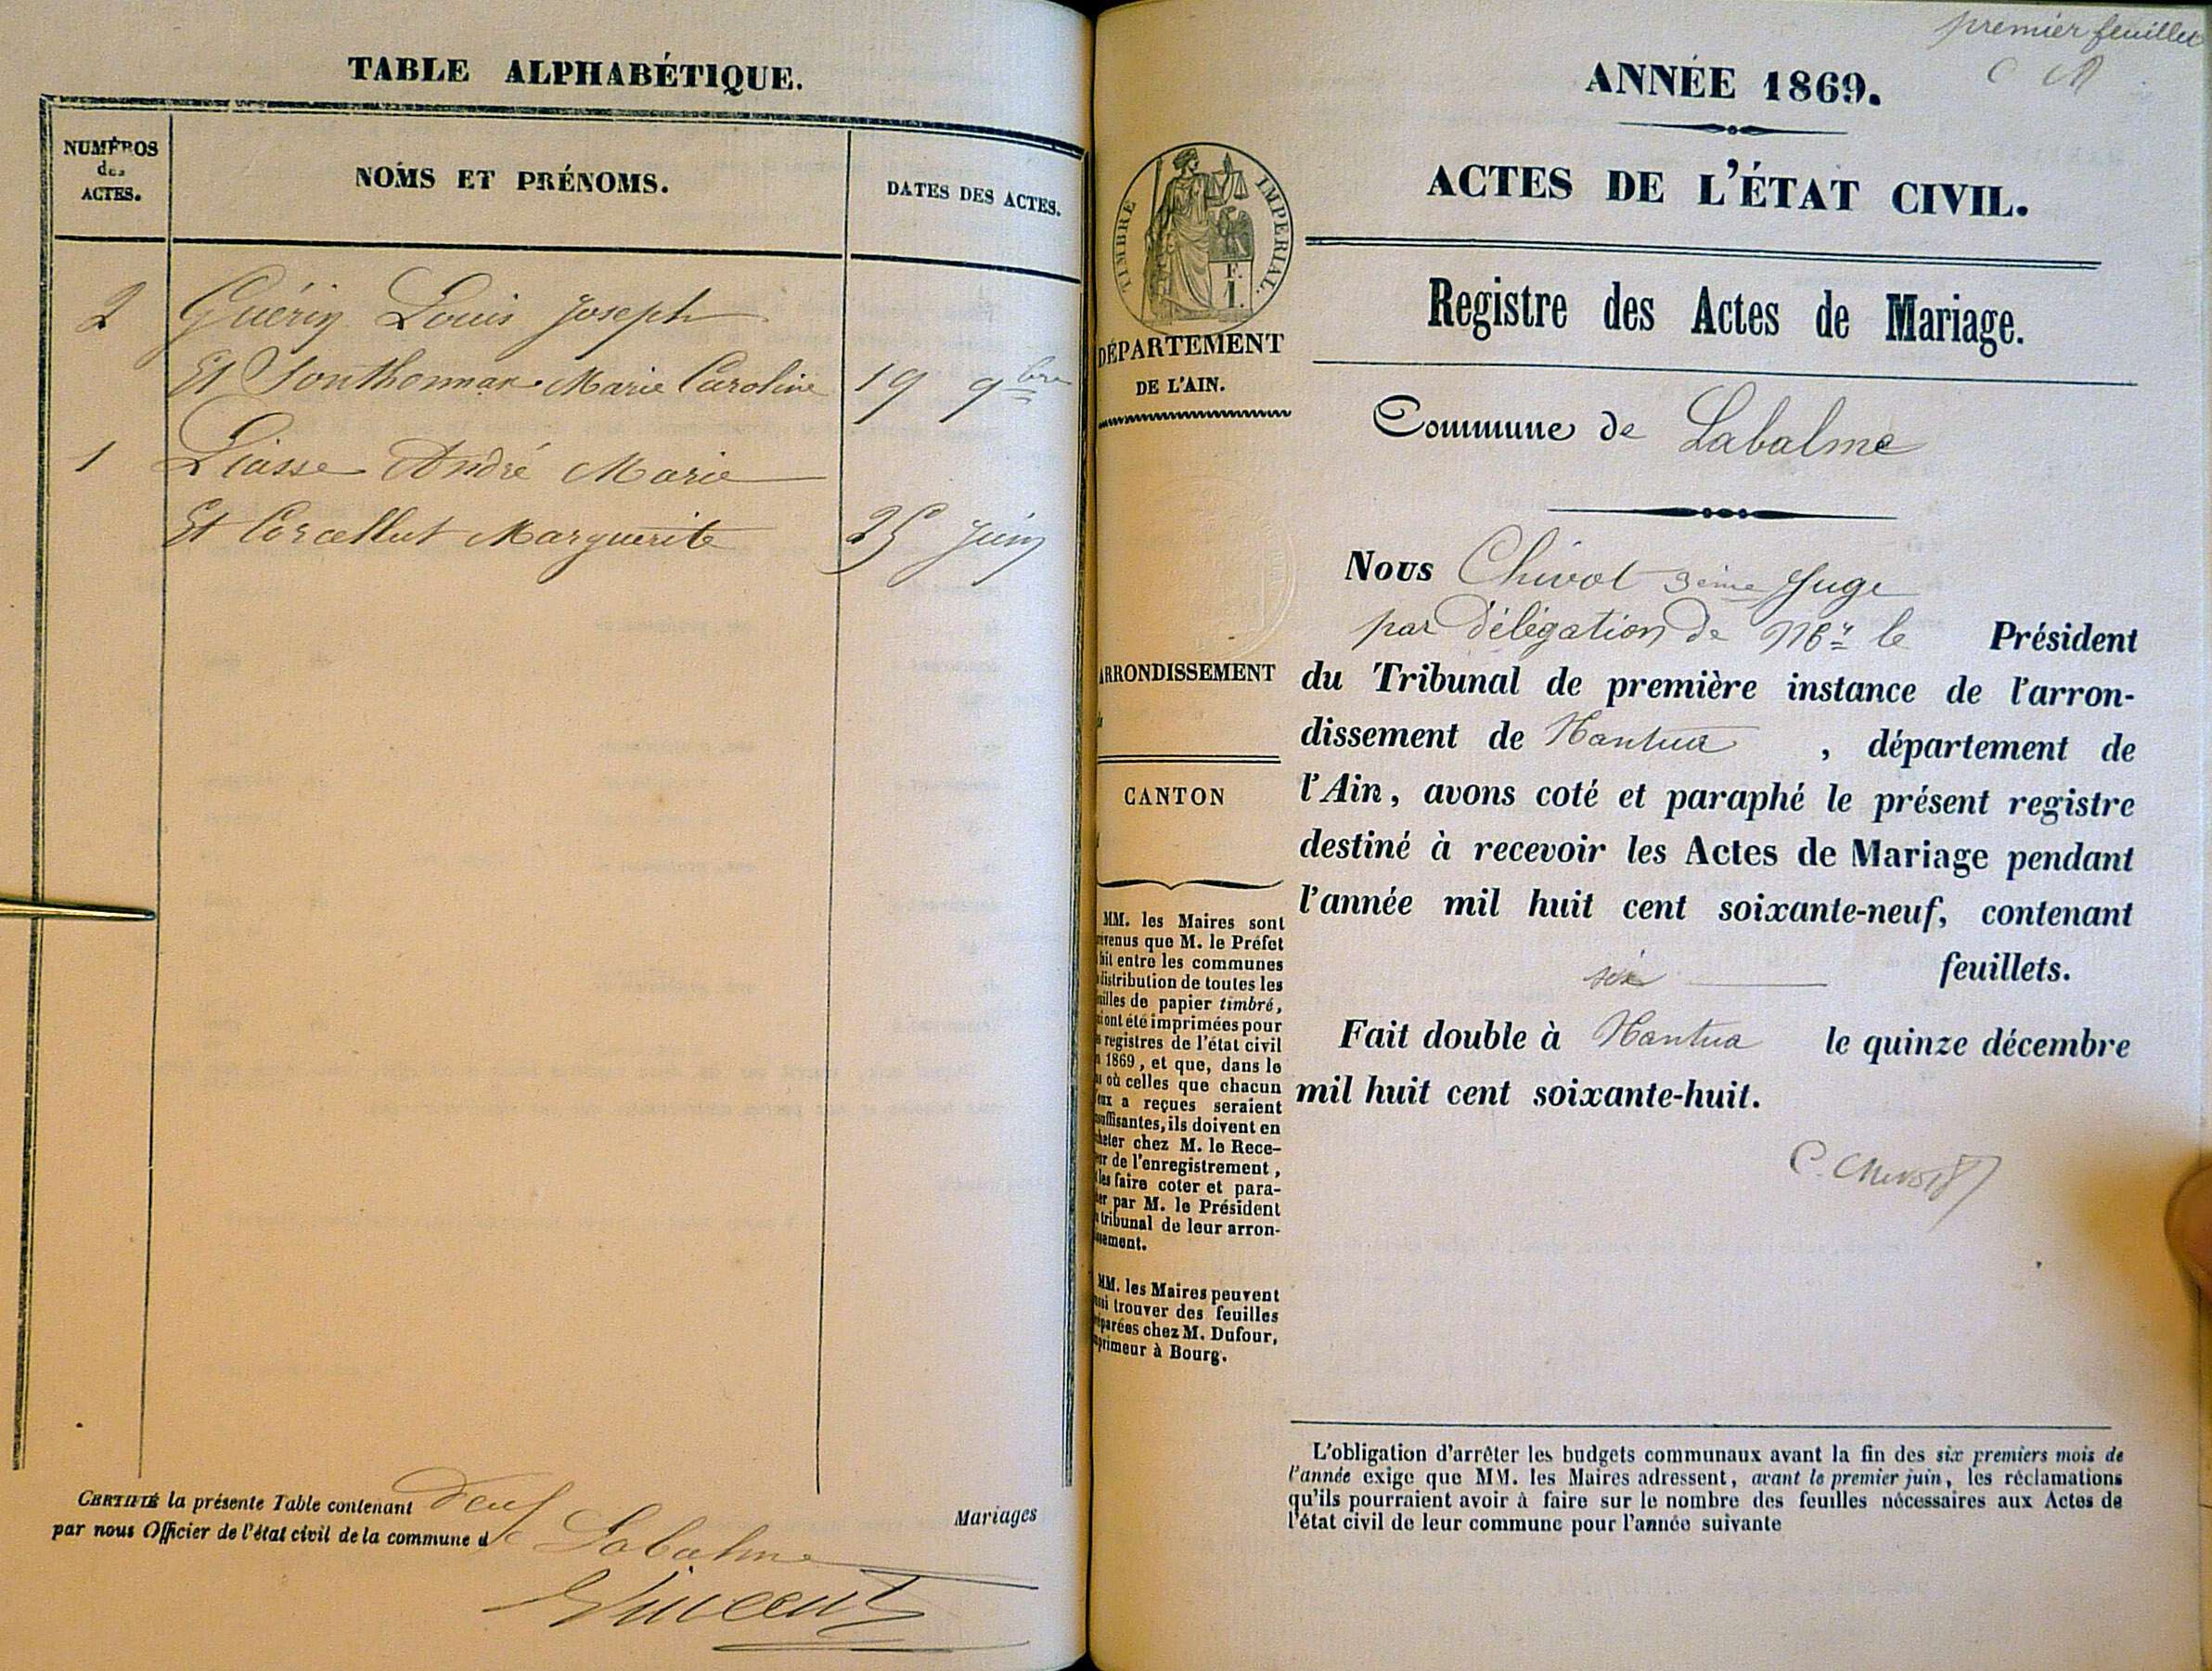 TABLE ALPHABÉTIQUE.
NUMÉROS
des
ACTES.
NOMS ET PRÉNOMS.
DATES DES ACTES.
2 Guérin Louis Joseph
Et Marie Caroline 19 9bre
1 Liasse André Marie
Et Corcellut Marguerite 25 Juin
CERTIFIÉ la présente Table contenant deux Mariages
par nous Officier de l'état civil de la commune de Labalme
Vincent
premier feuillet
ANNÉE 1869.
ACTES DE L'ÉTAT CIVIL.
TIMBRE IMPERIAL.
F.
I.
Registre des Actes de Mariage.
DÉPARTEMENT
DE L'AIN.
Commune de Labalme
Nous Chivot 3ème Juge
par délégation de Mr le Président
du Tribunal de première instance de l'arron-
dissement de Nantua, département de
l'Ain, avons coté et paraphé le présent registre
destiné à recevoir les Actes de Mariage pendant
l'année mil huit cent soixante-neuf, contenant
six feuillets.
Fait double à Nantua le quinze décembre
mil huit cent soixante-huit.
C. Chivot
ARRONDISSEMENT
CANTON
MM. les Maires sont
venus que M. le Préfet
it entre les communes
distribution de toutes les
illes de papier timbré,
i ont été imprimées pour
s registres de l'état civil
1869, et que, dans le
s où celles que chacun
eux a reçues seraient
suffisantes, ils doivent en
heter chez M. le Rece-
ur de l'enregistrement,
les faire coter et para-
er par M. le Président
tribunal de leur arron-
sement.
MM. les Maires peuvent
ssi trouver des feuilles
éparées chez M. Dufour,
primeur à Bourg.
L'obligation d'arrêter les budgets communaux avant la fin des six premiers mois de
l'année exige que MM. les Maires adressent, avant le premier juin, les réclamations
qu'ils pourraient avoir à faire sur le nombre des feuilles nécessaires aux Actes de
l'état civil de leur commune pour l'année suivante